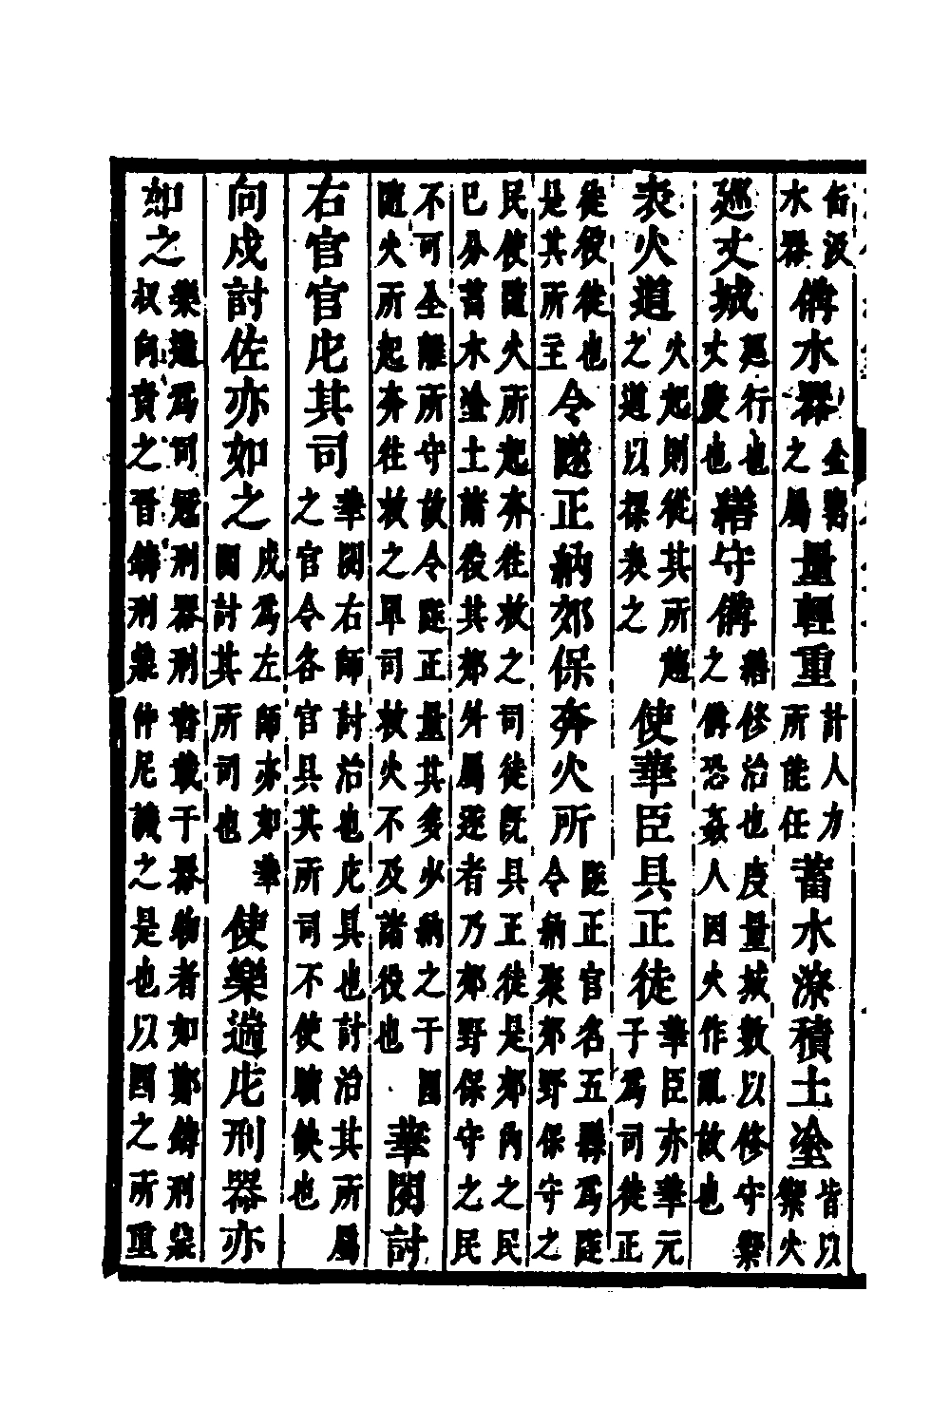 缶汲水器備水器盆鑒之屬量輕重計人力所能任蓄水潦積土塗皆以禦火
廵丈城廵行也丈度也繕守備繕修治也度量城數以修守禦之備恐姦人因火作亂故也
表火道火起則從其所趨之道以標表之使華臣具正徒華臣亦華元子爲司徒正
徒役徒也是其所主令隧正納郊保奔火所隧正官名五縣爲隧令納聚郊野保守之
民使隨火所起奔往救之司徒既具正徒是郊內之民已分蓄水塗土諸役其郊外屬逐者乃郊野保守之民
不可全離所守故令隧正量其多少納之于國隨火所起奔往救之單司救火不及諸役也華閱討
右官官庀其司華閱右師討治也庀具也討治其所屬之官令各官具其所司不使曠缺也
向戌討佐亦如之戌爲左師亦如華閱討其所司也使樂遄庀刑器亦
如之樂遄爲司寇刑器刑書載于器物者如鄭鑄刑鼎叔向責之晉鑄刑鼎仲尼譏之是也以國之所重